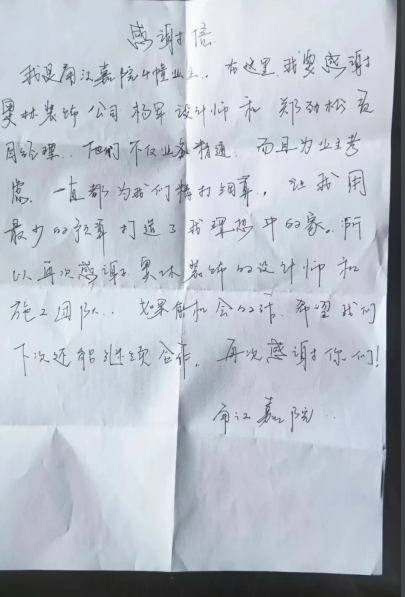 感谢信
我是甬江嘉院4幢业主，在这里我要感谢
奥林装饰公司杨军设计师和郑劲松项
目经理，他们不仅业务精通，而且为业主考
虑，一直都为我们精打细算，让我用
最少的预算打造了我理想中的家。所
以再次感谢奥林装饰的设计师和
施工团队，如果有机会的话，希望我们
下次还能继续合作。再次感谢你们！
甬江嘉院